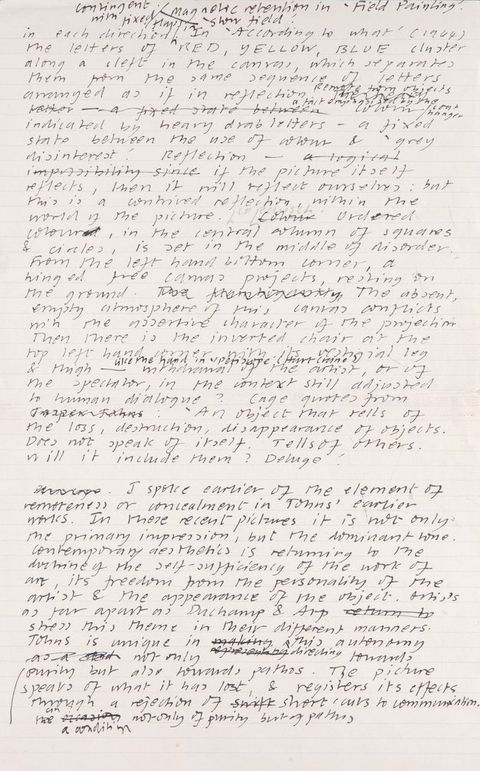 contingent magnetic retention in 'Field Painting'.
with fixed flaps 'Slow field'.
in each direction In 'According to what' (1964)
the letters of RED, YELLOW, BLUE cluster
along a cleft in the canvas, which separates
them from the same sequence of letters
arranged as if in reflection. Remote from objects
a fixed state between colour
indicated by heavy drab letters - a fixed
state between the use of colour & 'grey
disinterest'. Reflection - a logical
impossibility since if the picture itself
reflects, then it will reflect ourselves: but
this is a contrived reflection, within the
world of the picture. Colour Ordered
coloured, in the central column of squares
& circles, is set in the middle of disorder.
From the left hand bottom corner, a
hinged free canvas projects, resting on
the ground. The absent,
empty atmosphere of this canvas conflicts
with the assertive character of the projection
Then there is the inverted chair at the
top left hand corner with its vestigial leg
& thigh - withdrawal of the artist, or of
like the hand in 'Periscope (Hart Crane)'
the spectator, in the context still adjusted
to human dialogue? Cage quotes from
Jasper Johns: 'An object that tells of
the loss, destruction, disappearance of objects.
Does not speak of itself. Tells of others.
Will it include them? Deluge'.
I spoke earlier of the element of
remoteness or concealment in Johns' earlier
works. In these recent pictures it is not only
the primary impression, but the dominant tone.
Contemporary aesthetics is returning to the
doctrine of the self-sufficiency of the work of
art, its freedom from the personality of the
artist & the appearance of the object. Artists
as far apart as Duchamp & Arp return to
stress this theme in their different manners.
Johns is unique in making this autonomy
representing directing
not only towards
purity but also towards pathos. The picture
speaks of what it has lost, & registers its effects
through a rejection of swift short cuts to communication.
not only of purity but of pathos
a condition